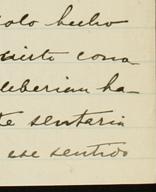 olo hecho
cierto cona
deberian ha-
te sentaria
ese sentido